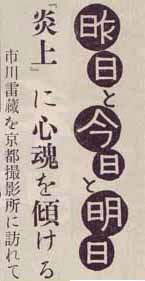 昨日と今日と明日
『炎上』に心魂を傾ける
市川雷蔵を京都撮影所に訪れて